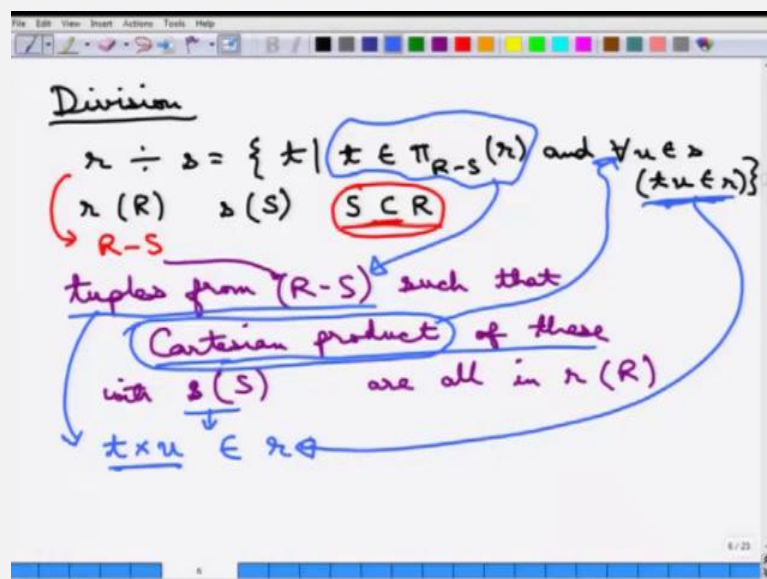 File Edit View Insert Actions Tools Help
Division
r ÷ s = { t | t ∈ π_{R-S}(r) and ∀u ∈ s
(tu ∈ r)}
r (R) s (S) S ⊂ R
R-S
tuples from (R-S) such that
Cartesian product of these
with s(S) are all in r (R)
t×u ∈ r
6/23
6